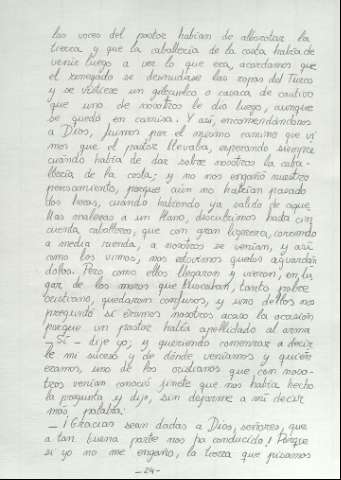 las voces del pastor habían de alborotar la
tierra y que la caballería de la costa había de
venir luego a ver lo que era, acordamos que
el renegado se desnudase las ropas del Turco
y se vistiese un gilecuelco o casaca de cautivo
que uno de nosotros le dio luego, aunque
se quedó en camisa. Y así, encomendándonos
a Dios, fuimos por el mismo camino que vi-
mos que el pastor llevaba, esperando siempre
cuándo había de dar sobre nosotros la caba-
llería de la costa; y no nos engañó nuestro
pensamiento, porque aún no habían pasado
dos horas, cuando habiendo ya salido de aque
llas malezas a un llano, descubrimos hasta cin
cuenta caballeros, que con gran ligereza, corriendo
a media rienda, a nosotros se venían, y así
como los vimos, nos estuvimos quedos aguardán
dolos. Pero como ellos llegaron y vieron, en lu
gar de los moros que buscaban, tanto pobre
cristiano, quedaron confusos, y uno dellos nos
preguntó si éramos nosotros acaso la ocasión
porque un pastor había apellidado al arma
- Sí - dije yo; y queriendo comenzar a decir
le mi suceso y de dónde veníamos y quién
éramos, uno de los cristianos que con noso-
tros venían conoció jinete que nos había hecho
la pregunta y dijo, sin dejarme a mí decir
más palabra:
- ¡Gracias sean dadas a Dios, señores, que
a tan buena parte nos ha conducido! Porque
si yo no me engaño, la tierra que pisamos
- 24 -